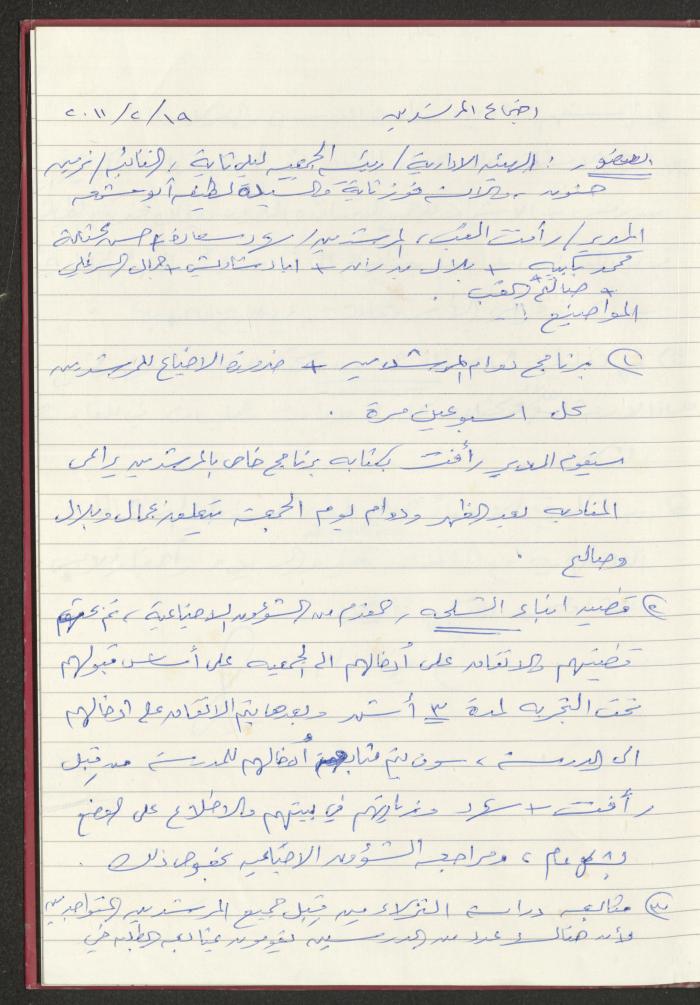 اجتماع المرشدين ١٩/٢/٢٠١١
الحضور : الهيئة الادارية / رئيسة الجمعية ليلى تاية ، النائب / نرمين
حنون ، والآنسة فوز تاية والسيدة لطيفة أبو عشمه
المدير / رأفت العب ، المرشدين / رعد سعادة + حسن
محمد + بلال + اياد + جمال السرغلي
+ صالح العب .
المواضيع :
① برنامج دوام المرشدين + ضرورة الاجتماع للمرشدين
كل اسبوعين مرة .
سيقوم المدير رأفت بكتابة برنامج خاص بالمرشدين يراعى
المناوبه بعد الظهر ودوام يوم الجمعة يتعلق بجمال وبلال
وصالح .
② قضية ابناء الشلحه ، المقدم من الشؤون الاجتماعية ، تم
قضيتهم والاتفاق على أدخالهم الى الجمعيه على أساس قبولهم
تحت التجربه لمدة ٣ أشهر وبعدها يتم الاتفاق على ادخالهم
الى المدرسة ، سوف يتم متابعة أدخالهم للمدرسة من قبل
رأفت + رعد وزيارتهم في بيتهم والاطلاع على الوضع
بشكل عام ، ومراجعة الشؤون الاجتماعيه بخصوص ذلك .
③ متابعه دراسة النزلاء من قبل جميع المرشدين المتواجدين
ولأن هنالك عدد من المدرسين يقومون بمتابعه الطلبه في